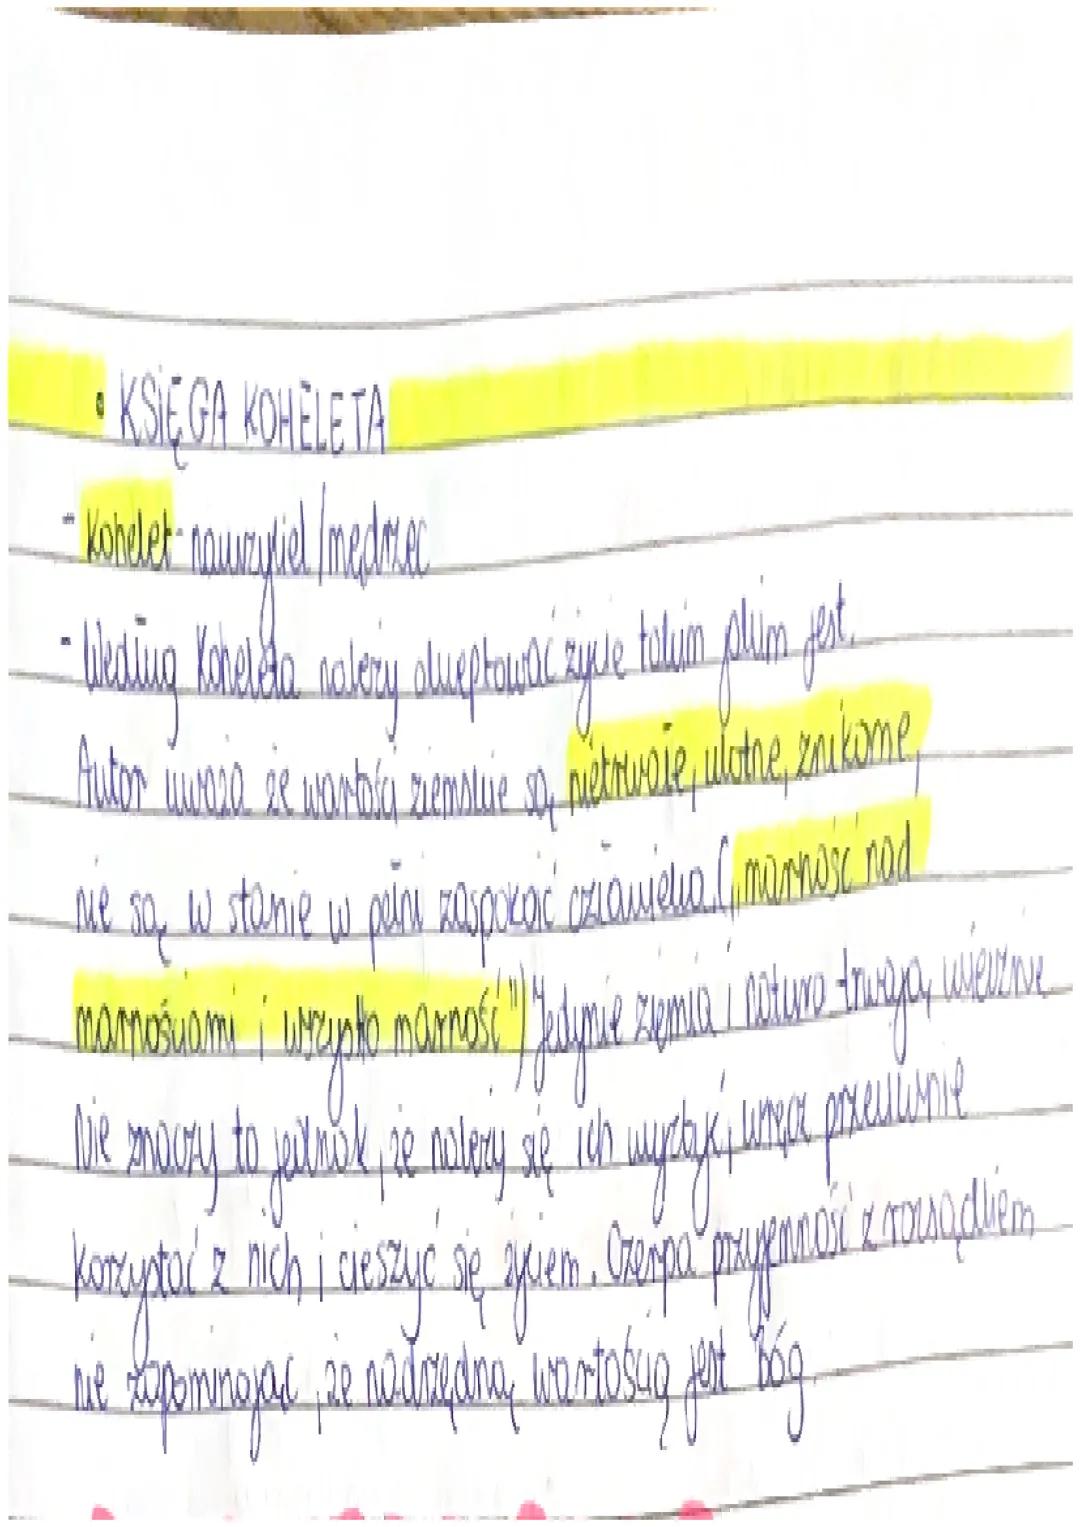 • KSIĘGA KOHELETA
- Kohelet - nauczyciel / mędrzec
- Według Koheleta należy akceptować życie takim jakim jest.
Autor uważa że wartości ziemskie są nietrwałe, ulotne, znikome,
nie są w stanie w pełni zaspokoić człowieka. („marność nad
marnościami i wszystko marność") Jedynie ziemia i natura trwają wiecznie
Nie znaczy to jednak, że należy się ich wyrzec, wręcz przeciwnie
korzystać z nich i cieszyć się życiem. Czerpać przyjemność z rozsądkiem
nie zapominając, że nadrzędną wartością jest Bóg.